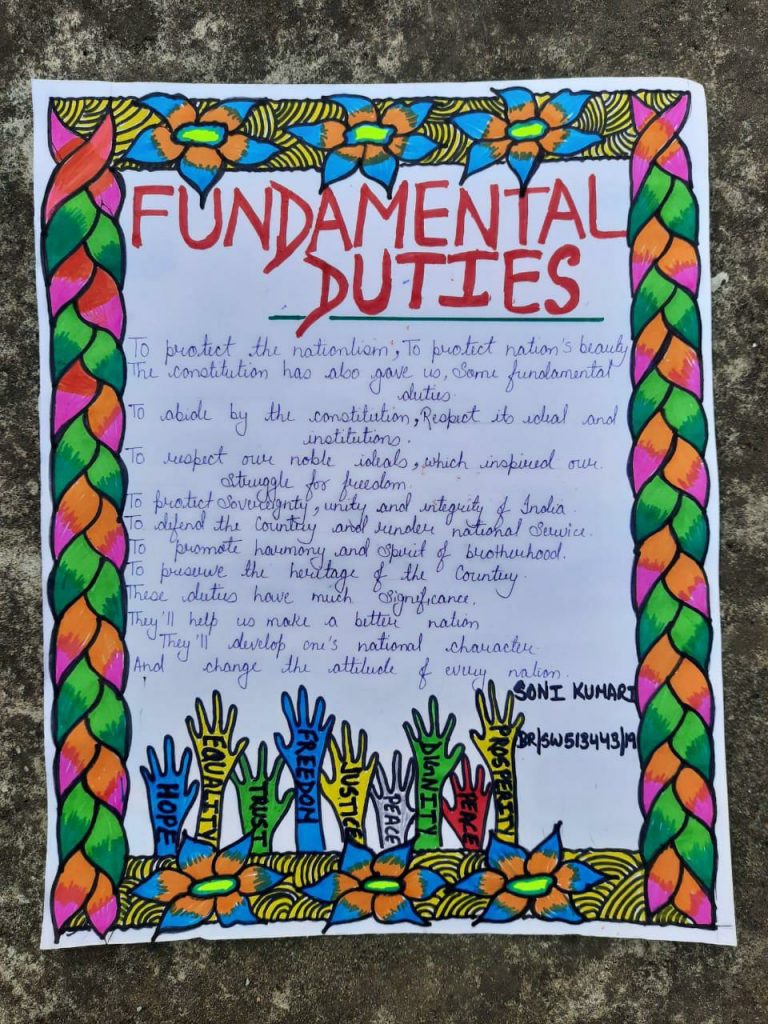 FUNDAMENTAL
DUTIES
To protect the nationlism, To protect nation's beauty
The constitution has also gave us, Some fundamental
duties.
To abide by the constitution, Respect its ideal and
institutions.
To respect our noble ideals, which inspired our
Struggle for freedom.
To protect Sovereignty, unity and integrity of India.
To defend the Country and render national Service.
To promote harmony and Spirit of brotherhood.
To preserve the heritage of the Country.
These duties have much Significance.
They'll help us make a better nation
They'll develop one's national character
And change the attitude of every nation.
SONI KUMARI
BR/SW513443/19
HOPE
EQUALITY
TRUST
FREEDOM
JUSTICE
PEACE
DIGNITY
PEACE
PROSPERITY